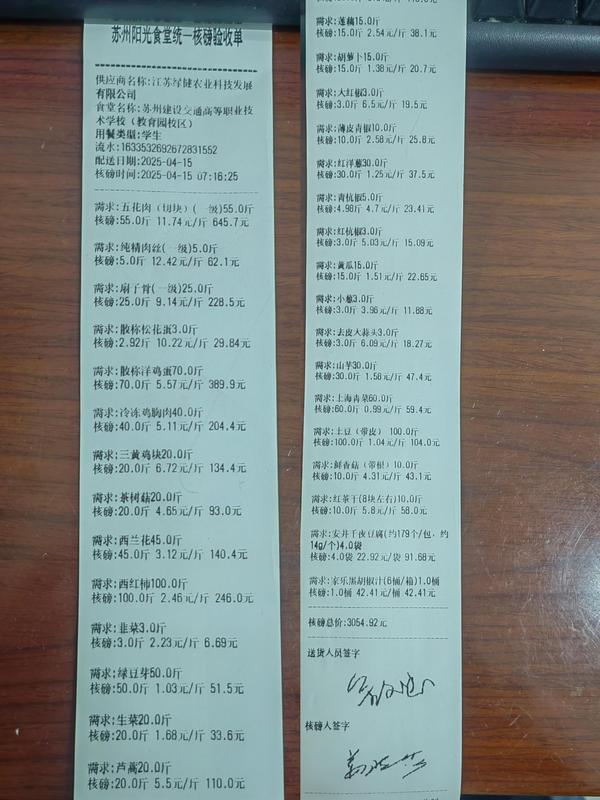 苏州阳光食堂统一核磅验收单
供应商名称:江苏绿健农业科技发展
有限公司
食堂名称:苏州建设交通高等职业技
术学校（教育园校区）
用餐类型:学生
流水:1633532692672831552
配送日期:2025-04-15
核磅时间:2025-04-15 07:16:25
需求:五花肉（切块）(一级)55.0斤
核磅:55.0斤 11.74元/斤 645.7元
需求:纯精肉丝(一级)5.0斤
核磅:5.0斤 12.42元/斤 62.1元
需求:扇子骨(一级)25.0斤
核磅:25.0斤 9.14元/斤 228.5元
需求:散称松花蛋3.0斤
核磅:2.92斤 10.22元/斤 29.84元
需求:散称洋鸡蛋70.0斤
核磅:70.0斤 5.57元/斤 389.9元
需求:冷冻鸡胸肉40.0斤
核磅:40.0斤 5.11元/斤 204.4元
需求:三黄鸡块20.0斤
核磅:20.0斤 6.72元/斤 134.4元
需求:茶树菇20.0斤
核磅:20.0斤 4.65元/斤 93.0元
需求:西兰花45.0斤
核磅:45.0斤 3.12元/斤 140.4元
需求:西红柿100.0斤
核磅:100.0斤 2.46元/斤 246.0元
需求:韭菜3.0斤
核磅:3.0斤 2.23元/斤 6.69元
需求:绿豆芽50.0斤
核磅:50.0斤 1.03元/斤 51.5元
需求:生菜20.0斤
核磅:20.0斤 1.68元/斤 33.6元
需求:芦蒿20.0斤
核磅:20.0斤 5.5元/斤 110.0元
需求:莲藕15.0斤
核磅:15.0斤 2.54元/斤 38.1元
需求:胡萝卜15.0斤
核磅:15.0斤 1.38元/斤 20.7元
需求:大红椒3.0斤
核磅:3.0斤 6.5元/斤 19.5元
需求:薄皮青椒10.0斤
核磅:10.0斤 2.58元/斤 25.8元
需求:红洋葱30.0斤
核磅:30.0斤 1.25元/斤 37.5元
需求:青杭椒5.0斤
核磅:4.98斤 4.7元/斤 23.41元
需求:红杭椒3.0斤
核磅:3.0斤 5.03元/斤 15.09元
需求:黄瓜15.0斤
核磅:15.0斤 1.51元/斤 22.65元
需求:小葱3.0斤
核磅:3.0斤 3.96元/斤 11.88元
需求:去皮大蒜头3.0斤
核磅:3.0斤 6.09元/斤 18.27元
需求:山芋30.0斤
核磅:30.0斤 1.58元/斤 47.4元
需求:上海青菜60.0斤
核磅:60.0斤 0.99元/斤 59.4元
需求:土豆（带皮）100.0斤
核磅:100.0斤 1.04元/斤 104.0元
需求:鲜香菇（带根）10.0斤
核磅:10.0斤 4.31元/斤 43.1元
需求:红茶干(8块左右)10.0斤
核磅:10.0斤 5.8元/斤 58.0元
需求:安井千夜豆腐(约179个/包，约
14g/个)4.0袋
核磅:4.0袋 22.92元/袋 91.68元
需求:家乐黑胡椒汁(6桶/箱)1.0桶
核磅:1.0桶 42.41元/桶 42.41元
核磅总价:3054.92元
送货人员签字
核磅人签字